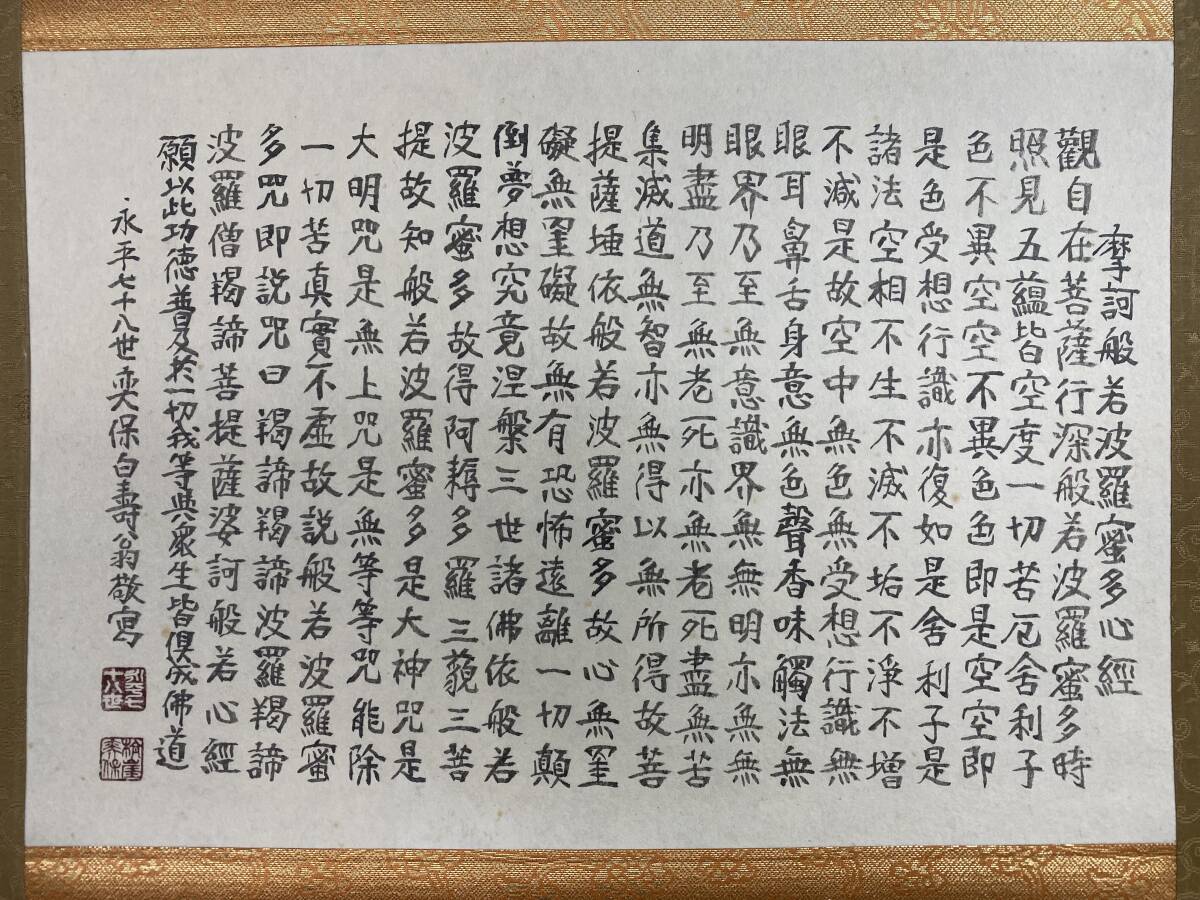 摩訶般若波羅蜜多心經
觀自在菩薩行深般若波羅蜜多時
照見五蘊皆空度一切苦厄舍利子
色不異空空不異色色即是空空即
是色受想行識亦復如是舍利子是
諸法空相不生不滅不垢不淨不增
不減是故空中無色無受想行識無
眼耳鼻舌身意無色聲香味觸法無
眼界乃至無意識界無無明亦無無
明盡乃至無老死亦無老死盡無苦
集滅道無智亦無得以無所得故菩
提薩埵依般若波羅蜜多故心無罣
礙無罣礙故無有恐怖遠離一切顛
倒夢想究竟涅槃三世諸佛依般若
波羅蜜多故得阿耨多羅三藐三菩
提故知般若波羅蜜多是大神咒是
大明咒是無上咒是無等等咒能除
一切苦真實不虛故説般若波羅蜜
多咒即説咒曰羯諦羯諦波羅羯諦
波羅僧羯諦菩提薩婆訶般若心經
願以此功德普及於一切我等與眾生皆俱成佛道
永平七十八世奕保白壽翁敬寫